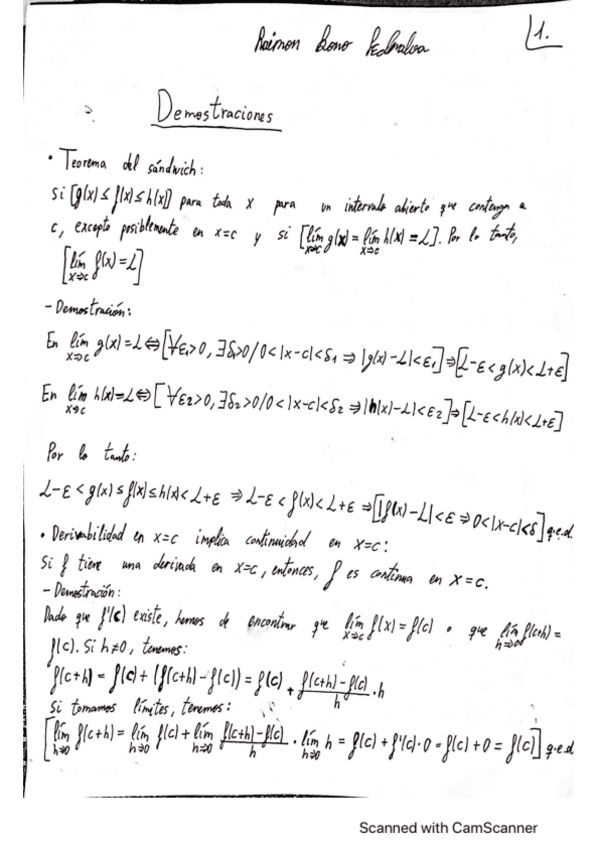 Raimon Bono Pedralva
1.
Demostraciones
• Teorema del sándwich:
Si [g(x) ≤ f(x) ≤ h(x)] para toda x para un intervalo abierto que contenga a
c, excepto posiblemente en x=c y si [lím x→c g(x) = lím x→c h(x) = L]. Por lo tanto,
[lím x→c f(x) = L]
- Demostración:
En lím x→c g(x)=L ⇔ [∀ε₁>0, ∃δ₁>0/0<|x-c|<δ₁ ⇒ |g(x)-L|<ε₁] ⇒ [L-ε<g(x)<L+ε]
En lím x→c h(x)=L ⇔ [∀ε₂>0, ∃δ₂>0/0<|x-c|<δ₂ ⇒ |h(x)-L|<ε₂] ⇒ [L-ε<h(x)<L+ε]
Por lo tanto:
L-ε < g(x) ≤ f(x) ≤ h(x) < L+ε ⇒ L-ε < f(x) < L+ε ⇒ [|f(x)-L|<ε ⇒ 0<|x-c|<δ] q.e.d.
• Derivabilidad en x=c implica continuidad en x=c:
Si f tiene una derivada en x=c, entonces, f es continua en x=c.
- Demostración:
Dado que f'(c) existe, hemos de encontrar que lím x→c f(x) = f(c) o que lím h→0 f(c+h) =
f(c). Si h≠0, tenemos:
f(c+h) = f(c) + (f(c+h)-f(c)) = f(c) + (f(c+h)-f(c))/h · h
Si tomamos límites, tenemos:
[lím h→0 f(c+h) = lím h→0 f(c) + lím h→0 (f(c+h)-f(c))/h · lím h→0 h = f(c) + f'(c)·0 = f(c)+0 = f(c)] q.e.d
Scanned with CamScanner